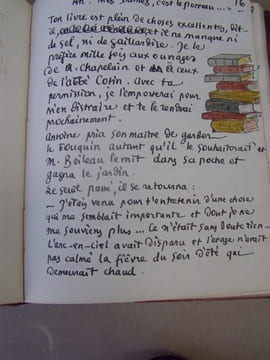 Ah! mes Dames, c'est le poireau...»
16
Ton livre est plein de choses excellentes, dit-
il, et il ne manque ni
de sel, ni de gaillardise. Je le
préfère mille fois aux ouvrages
de M. Chapelain et à ceux
de l'abbé Cotin. Avec ta
permission, je l'emporterai pour
m'en distraire et te le rendrai
prochainement.
Antoine pria son maître de garder
le bouquin autant qu'il le souhaiterait et
M. Boileau le mit dans sa poche et
gagna le jardin.
Le seuil passé, il se retourna :
— J'étais venu pour t'entretenir d'une chose
qui me semblait importante et dont je ne
me souviens plus... Ce n'était sans doute rien..
L'arc-en-ciel avait disparu et l'orage n'avait
pas calmé la fièvre du soir d'été qui
demeurait chaud.